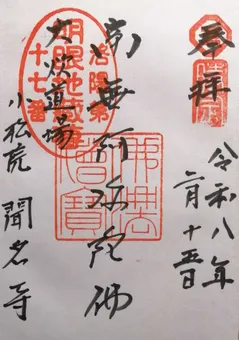 奉拝
令和八年
二月十五日
南無阿弥陀佛
佛法
僧寶
洛陽第
明眼地蔵
十七番
大炊道場
聞名寺